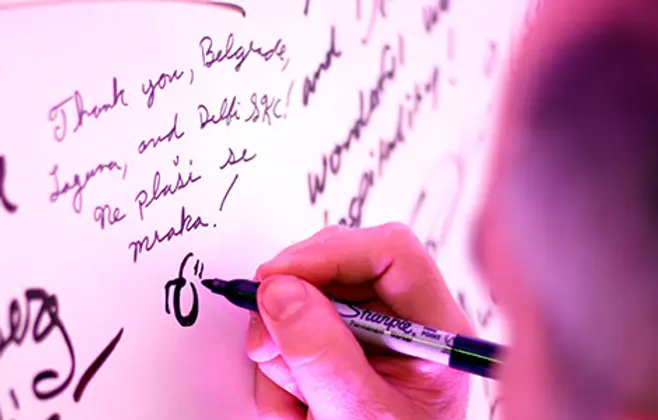 Thank you, Belgrade,
Laguna, and Delfi SKC!
Ne plaši se
mraka!
and
wonderful
hospitality!
Sharpie